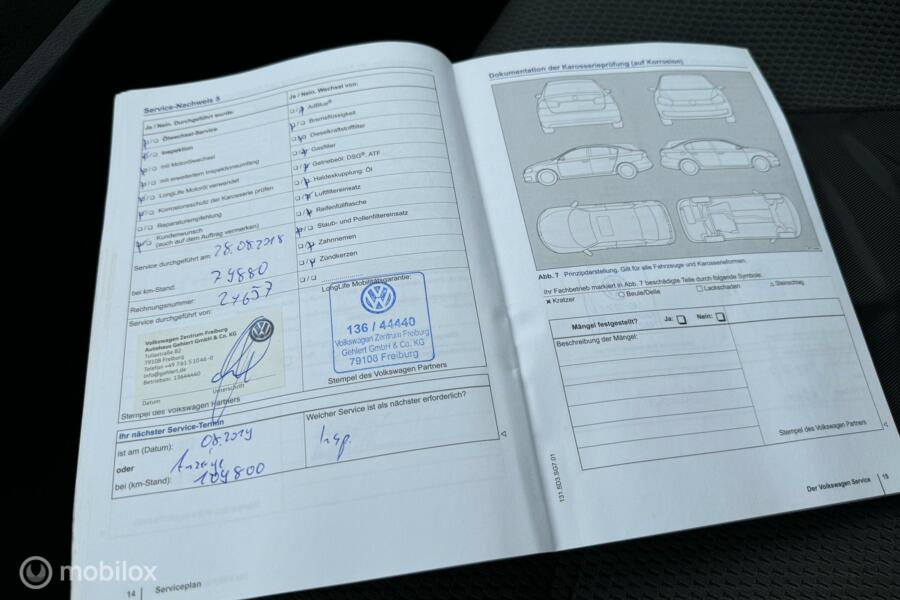 Service-Nachweis 5
Ja / Nein. Durchgeführt wurde:
Ölwechsel-Service
Inspektion
mit Motorölwechsel
mit erweitertem Inspektionsumfang
LongLife Motoröl verwendet
Korrosionsschutz der Karosserie prüfen
Reparaturempfehlung
Kundenwunsch
(auch auf dem Auftrag vermerken)
Service durchgeführt am: 28.08.2018
bei km-Stand: 79880
Rechnungsnummer: 27657
Service durchgeführt von:
Volkswagen Zentrum Freiburg
Autohaus Gehlert GmbH & Co. KG
Tullastraße 82
79108 Freiburg
Telefon +49 761 51046-0
info@gehlert.de
Betriebsnr. 13644440
Datum
Unterschrift
Stempel des Volkswagen Partners
Ja / Nein. Wechsel von:
AdBlue®
Bremsflüssigkeit
Dieselkraftstofffilter
Gasfilter
Getriebeöl: DSG®, ATF
Haldexkupplung: Öl
Luftfiltereinsatz
Reifenfüllflasche
Staub- und Pollenfiltereinsatz
Zahnriemen
Zündkerzen
LongLife Mobilitätsgarantie:
136 / 44440
Volkswagen Zentrum Freiburg
Gehlert GmbH & Co. KG
79108 Freiburg
Stempel des Volkswagen Partners
Ihr nächster Service-Termin
ist am (Datum): 08.2019
oder Anzeige
bei (km-Stand): 109800
Welcher Service ist als nächster erforderlich?
Insp.
14 Serviceplan
Dokumentation der Karosserieprüfung (auf Korrosion)
Abb. 7 Prinzipdarstellung. Gilt für alle Fahrzeuge und Karosserieformen.
Ihr Fachbetrieb markiert in Abb. 7 beschädigte Teile durch folgende Symbole:
Kratzer Beule/Delle Lackschaden Steinschlag
Mängel festgestellt? Ja: Nein:
Beschreibung der Mängel:
Stempel des Volkswagen Partners
131.5D3.SG7.01
Der Volkswagen Service 15
mobilox